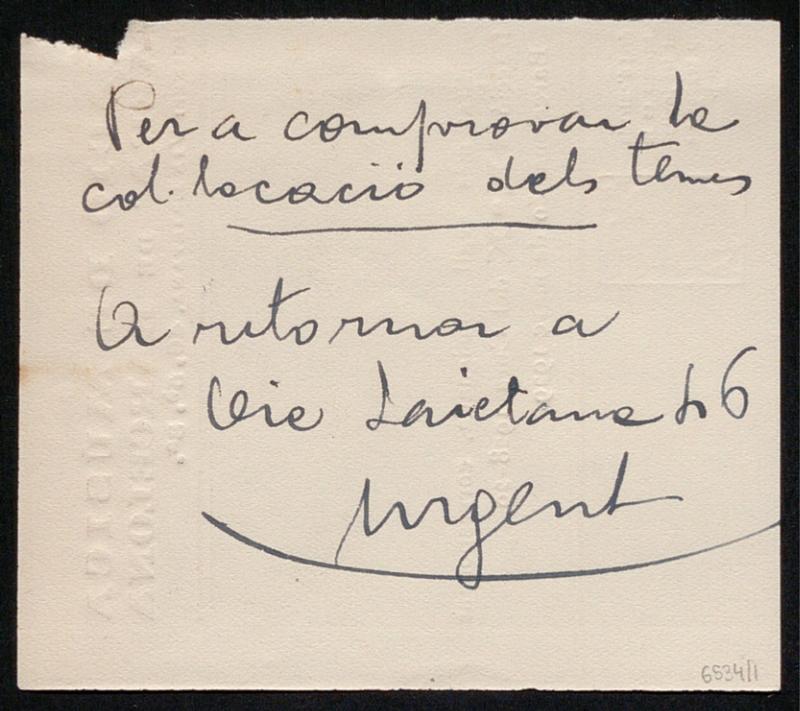 Per a comprovar la
col·locació dels temes
A retornar a
Via Laietana 46
Urgent
6534/1